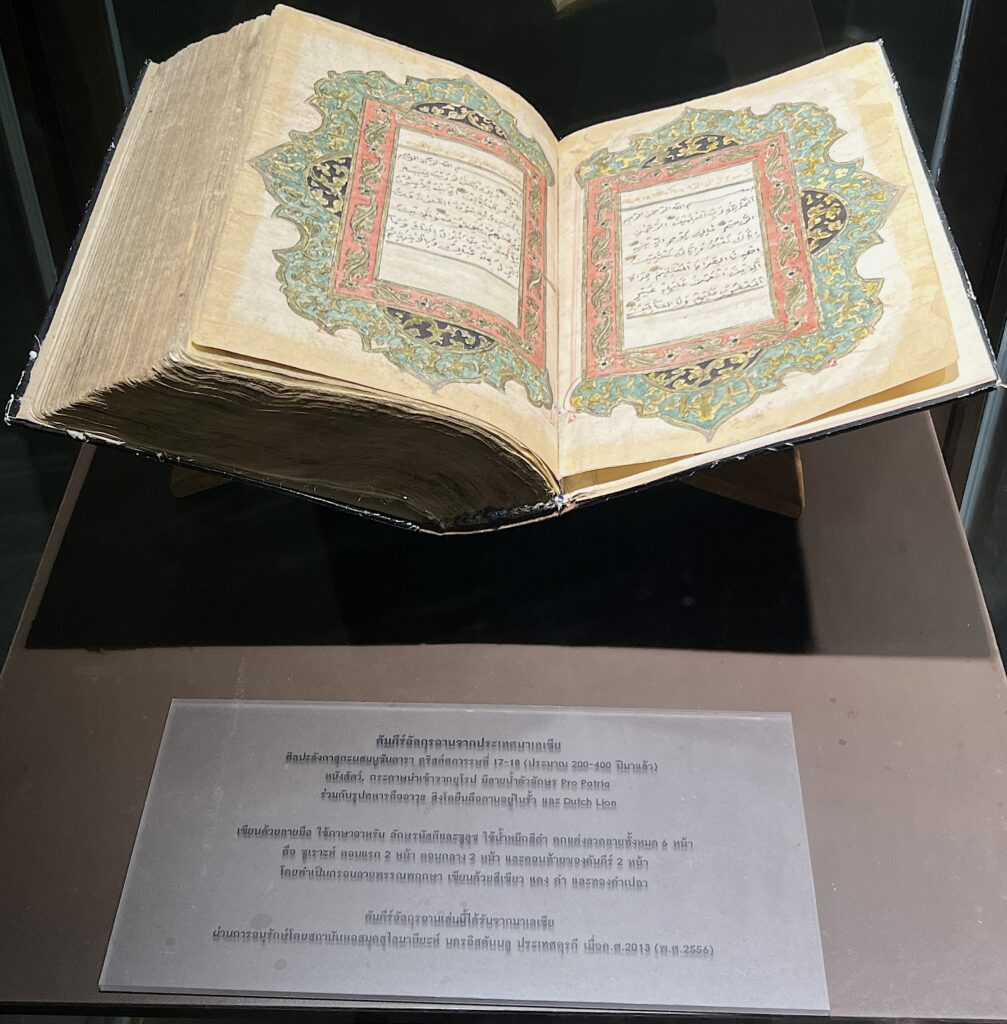 بسم الله الرحمن الرحيم
الحمد لله رب العلمين الرحمن
الرحيم ملك يوم الدين
اياك نعبد واياك نستعين
اهدنا الصراط المستقيم صراط
الذين انعمت عليهم غير
المغضوب عليهم ولا الضالين
بسم الله الرحمن الرحيم
คัมภีร์อัลกุรอานจากประเทศมาเลเซีย
ศิลปะลังกาสุกะผสมนูซันตารา คริสต์ศตวรรษที่ 17-18 (ประมาณ 200-400 ปีมาแล้ว)
หนังสัตว์, กระดาษนำเข้าจากยุโรป มีลายน้ำตัวอักษร Pro Patria
ร่วมกับรูปทหารถืออาวุธ สิงโตยืนถือดาบอยู่ในรั้ว และ Dutch Lion
เขียนด้วยลายมือ ใช้ภาษาอาหรับ อักษรนัสคีและซูลุซ ใช้น้ำหมึกสีดำ ตกแต่งลวดลายทั้งหมด 6 หน้า
คือ ซูเราะห์ ตอนแรก 2 หน้า ตอนกลาง 2 หน้า และตอนท้ายของคัมภีร์ 2 หน้า
โดยทำเป็นกรอบลายพรรณพฤกษา เขียนด้วยสีเขียว แดง ดำ และทองคำเปลว
คัมภีร์อัลกุรอานเล่มนี้ได้รับจากมาเลเซีย
ผ่านการอนุรักษ์โดยสถาบันหอสมุดสุไลมานียะห์ นครอิสตันบูล ประเทศตุรกี เมื่อค.ศ.2013 (พ.ศ.2556)